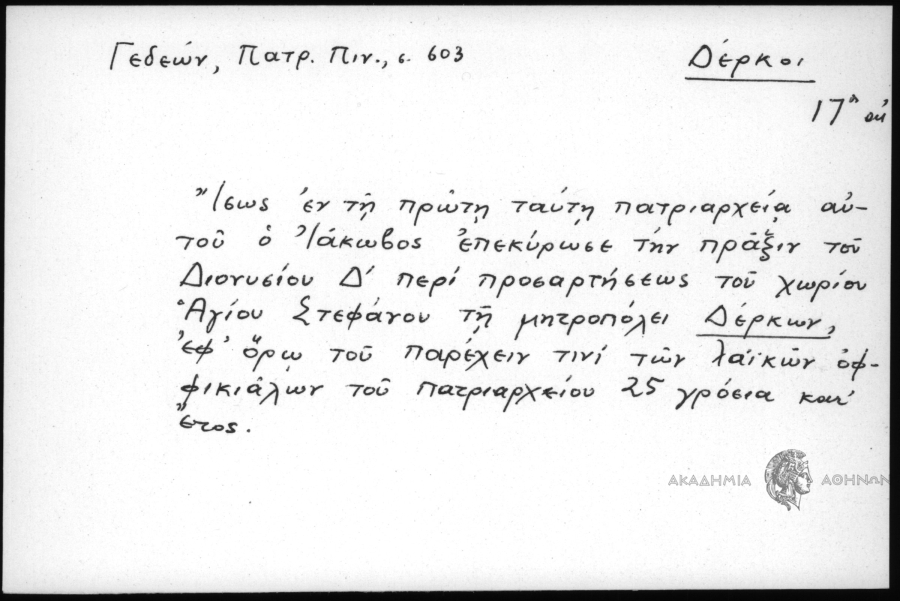 Γεδεών, Πατρ. Πιν., σ. 603
Δέρκοι
17ος αἰ
Ἴσως ἐν τῇ πρώτῃ ταύτῃ πατριαρχείᾳ αὐ-
τοῦ ὁ Ἰάκωβος ἐπεκύρωσε τὴν πρᾶξιν τοῦ
Διονυσίου Δ' περὶ προσαρτήσεως τοῦ χωρίου
Ἁγίου Στεφάνου τῇ μητροπόλει Δέρκων,
ἐφ' ὅρῳ τοῦ παρέχειν τινί τῶν λαϊκῶν ὀφ-
φικιάλων τοῦ πατριαρχείου 25 γρόσια κατ'
ἔτος.
ΑΚΑΔΗΜΙΑ ΑΘΗΝΩΝ